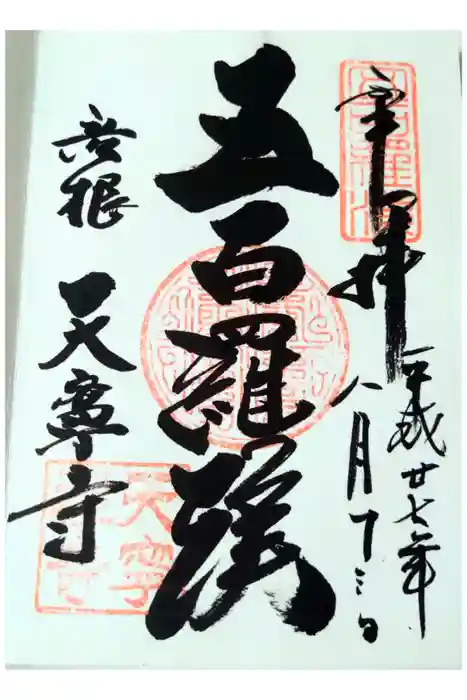 奉拝
平成廿七年
八月十三日
五百羅漢
彦根
天寧寺
天寧